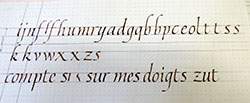 ijnflfhumryadgqbbpceolttss
kkvwxxzs
compte sur mes doigts zut